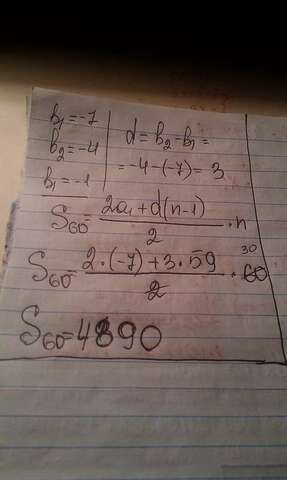 b₁=-7
b₂=-4
b₁=-1
d=b₂-b₁=
=-4-(-7)=3
S₆₀=(2a₁+d(n-1))/2·n
S₆₀=(2·(-7)+3·59)/2·60 30
S₆₀=4890